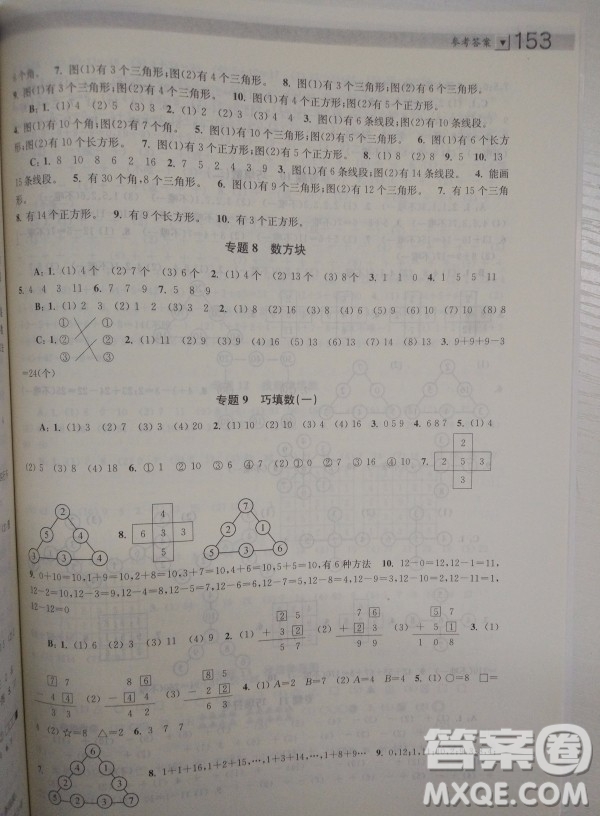 参考答案 ▼ 153
个角。 7. 图(1)有3个三角形;图(2)有4个三角形。 8. 图(1)有3个三角形;图(2)有4个三角形。
9. 图(1)有3个三角形;图(2)有4个三角形。 10. 图(1)有4个正方形;图(2)有4个正方形。
B:1. (1)4 (2)5 (3)3 2. (1)2 (2)3 (3)4 4 3. (1)有6条线段;(2)有10条线段。
4. 图(1)有10个角;图(2)有7个角。 5. 图(1)有10个三角形;图(2)有5个三角形。 6. 图(1)有6个长方
形;图(2)有10个长方形。 7. 图(1)有10个正方形;图(2)有5个正方形。
C:1. 8 10 8 6 2 16 2. 7 5 2 4 3 9 3. (1)有6条线段。(2)有10条线段。 4. 能画
15条线段。 5. 有30个角,8个三角形。 6. 图(1)有9个三角形;图(2)有12个三角形。 7. 有15个
8. 有14个正方形。 9. 有9个长方形。 10. 有3个正方形。
专题8 数方块
A:1. (1)4个 (2)7个 (3)6个 2. (1)4个 (2)9个 (3)8个 3. 1 1 0 4. 1 5 5 11
5. 4 4 3 11 6. 7 7 9 7. 5 8 9
B:1. (1)8 (2)8 (3)8 (4)9 (5)10 (6)8 2. (1)8 (2)16 (3)10 (4)13 (5)8 (6)16
C:1. ① ① ② ② ③ ③ 2. (1)9 (2)7 (3)9 (4)13 (5)16 (6)13 3. 9+9+9-3
=24(个)
专题9 巧填数(一)
A:1. (1)3 (2)7 (3)6 2. (1)10 (2)10 (3)16 3. 0 5 9 4. 6 8 7 5. (1)4
(2)5 (3)8 (4)18 6. ①1 ②10 ③6 ④10 7. 2 2 5 3 3
2 5 4 3 3 4 8. 4 6 3 3 5 7 2 1 5 3 6
9. 0+10=10,1+9=10,2+8=10,3+7=10,4+6=10,5+5=10,有6种方法 10. 12-0=12,12-1=11,
12-2=10,12-3=9,12-4=8,12-5=7,12-6=6,12-7=5,12-8=4,12-9=3,12-10=2,12-11=1,
12-12=0
B:1. (1)5 (2)3 (3)11 (4)9 2. (1) 2 5 + 3 2 5 7 (2) 7 6 + 2 3 9 9 (3) 5 7 + 5 1 1 0 8
3. (1) 7 7 - 4 4 3 3 (2) 8 6 - 4 4 4 2 (3) 8 5 - 2 2 6 3 4. (1)A=2 B=7 (2)A=4 B=4 5. (1)○=8 □=
(2)☆=8 △=2 6. 3 7 7
7. 6 8. 1+1+16,1+2+15,…,1+3+14,…,1+8+9… 9. 0,12;1,
答案卷
MXQE.COM